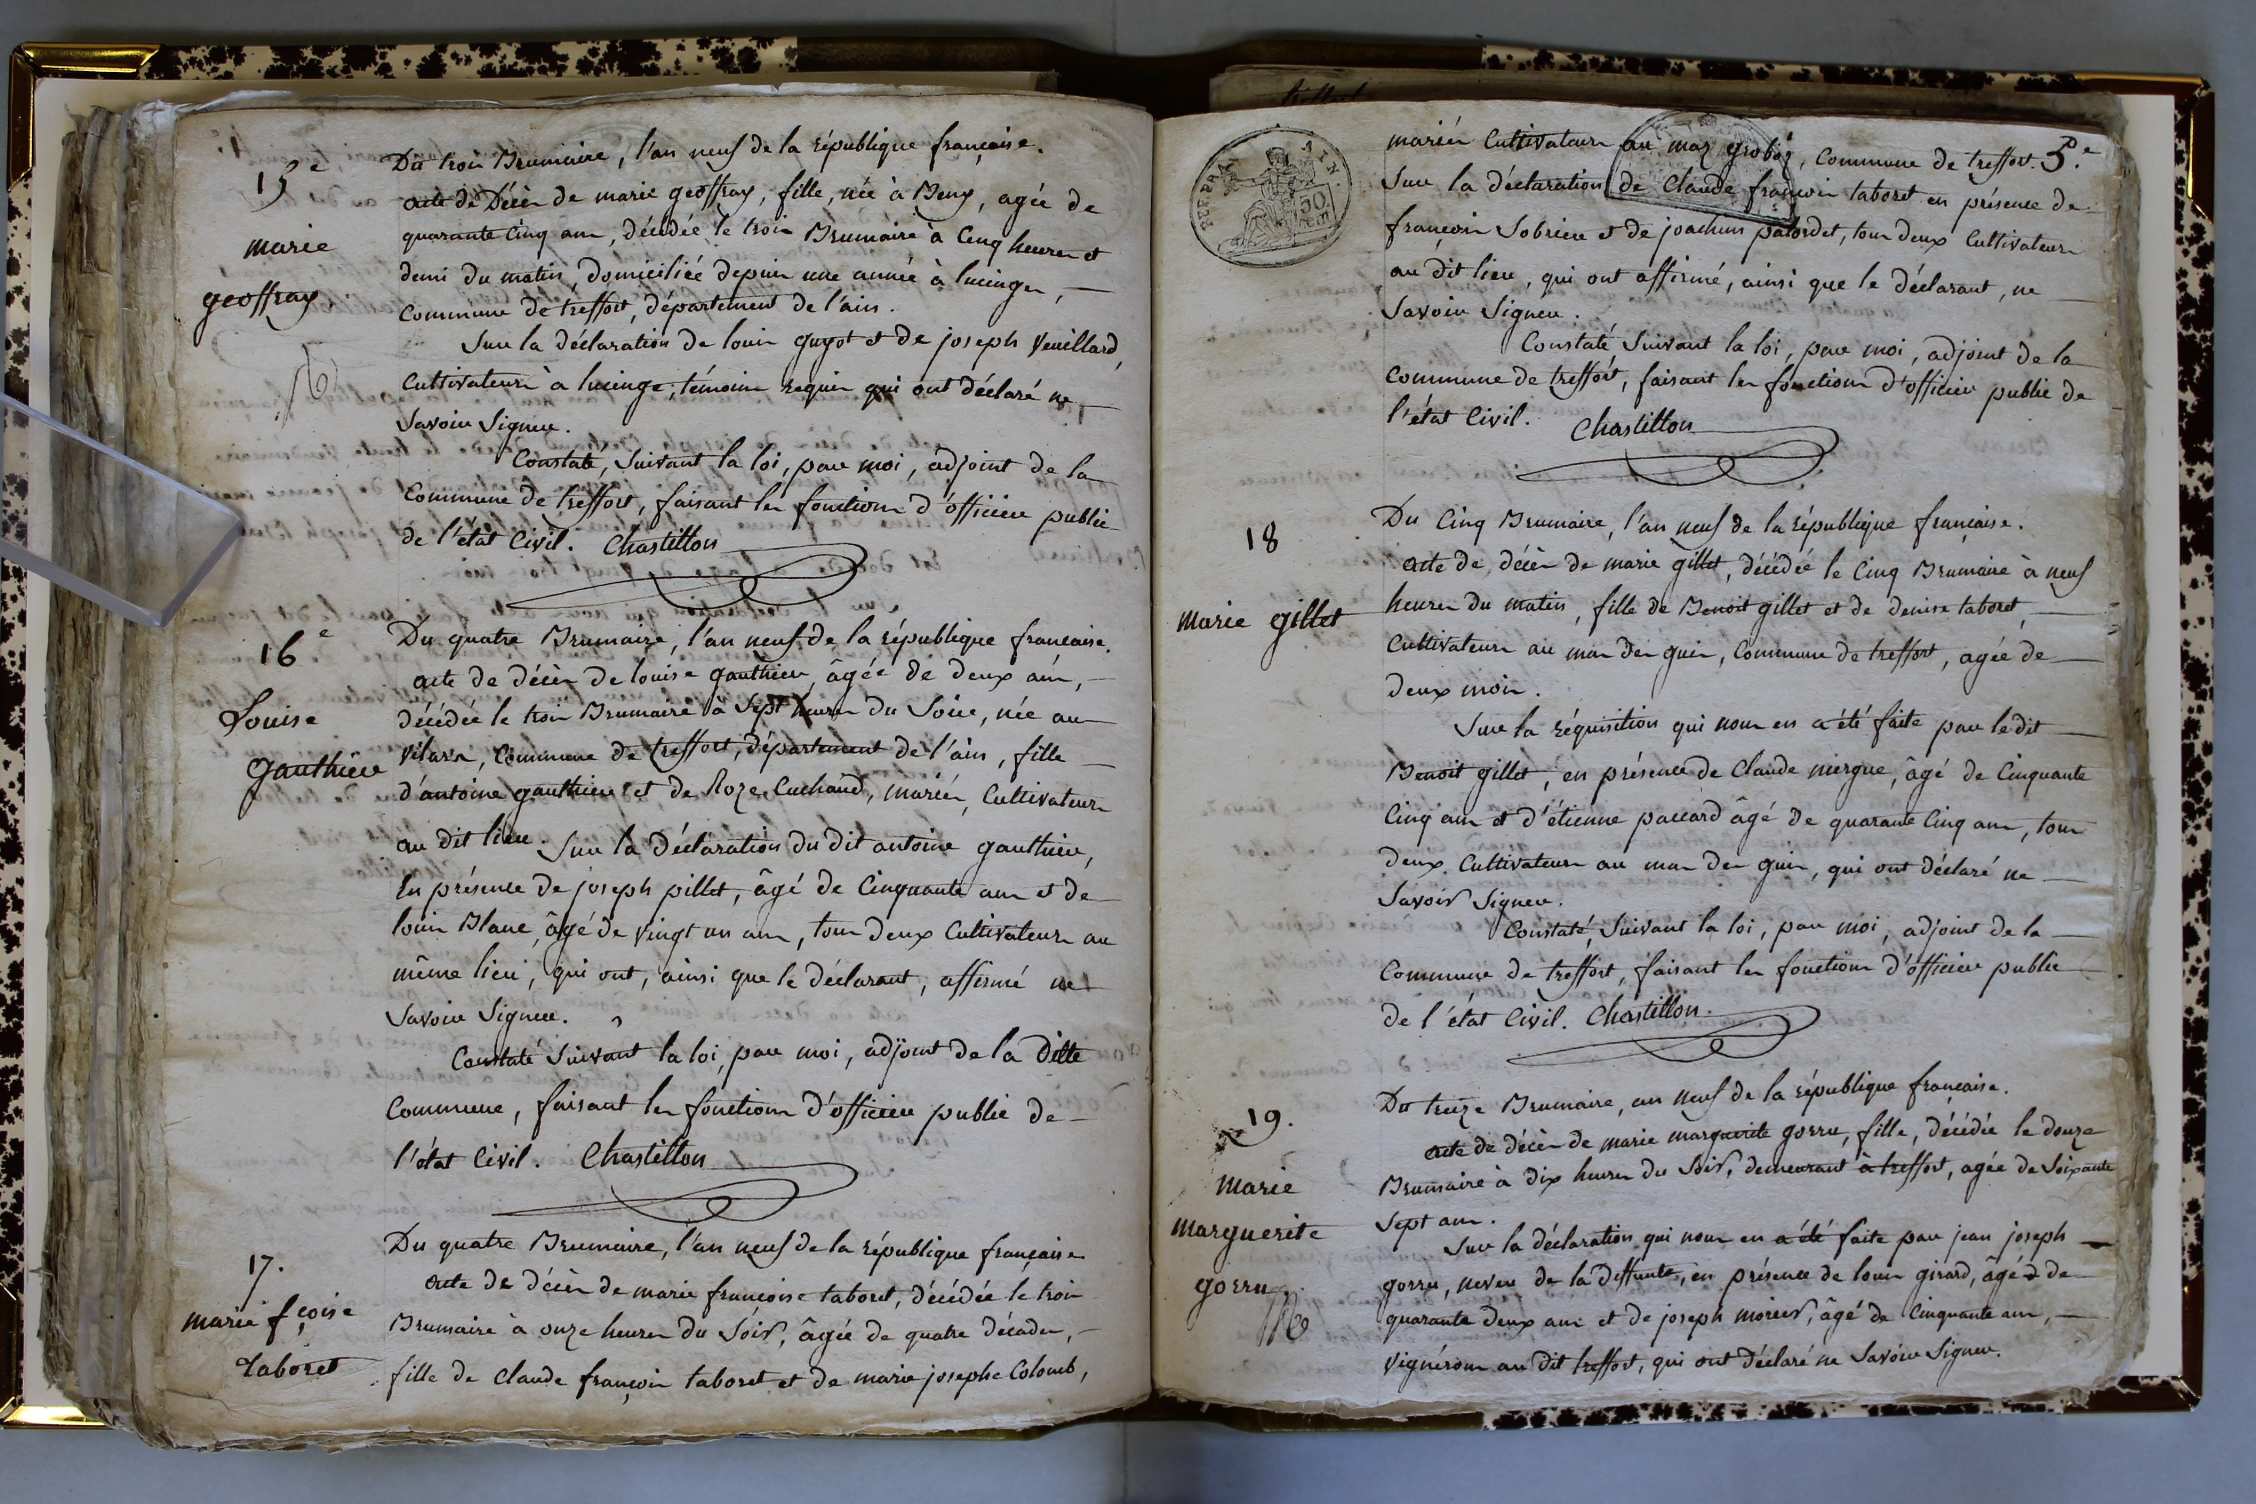 15e
marie
geoffray
Du trois Brumaire, l'an neuf de la république française.
acte de Décès de marie geoffray, fille, née à Beny, agée de
quarante Cinq ans, décédée le trois Brumaire à Cinq heures et
demi du matin, domiciliée depuis une année à lucinges,
Commune de treffort, département de l'ain.
Sur la déclaration de louis guyot et de joseph Veuillard,
Cultivateurs à lucinge, témoins requis qui ont déclaré ne
Savoir Signer.
Constaté, suivant la loi, par moi, adjoint de la
Commune de treffort, faisant les fonctions d'officier public
de l'état Civil. Chastillon
16e
Louise
Gauthier
Du quatre Brumaire, l'an neuf de la république française.
acte de décès de louise gauthier, âgée de deux ans,
décédée le trois Brumaire à Sept heures du Soir, née au
vilars, Commune de treffort, département de l'ain, fille
d'antoine gauthier et de Roze Cuchaud, mariés, Cultivateurs
au dit lieu. Sur la déclaration du dit antoine gauthier,
En présence de joseph pillet, âgé de Cinquante ans et de
louis Blanc, âgé de vingt un ans, tous deux Cultivateurs au
même lieu, qui ont, ainsi que le déclarant, affirmé ne
Savoir Signer.
Constaté suivant la loi, par moi, adjoint de la ditte
Commune, faisant les fonctions d'officier public de
l'état Civil. Chastillon
17.
marie fçoise
taboret
Du quatre Brumaire, l'an neuf de la république française
acte de décès de marie françoise taboret, décédée le trois
Brumaire à onze heures du Soir, âgée de quatre décades,
fille de Claude françois taboret et de marie josephe Colomb,
mariés Cultivateurs au maz grobóz, Commune de treffort. 3.e
Sur la déclaration de Claude françois taboret en présence de
françois Sobrier et de joachim patordet, tous deux Cultivateurs
au dit lieu, qui ont affirmé, ainsi que le déclarant, ne
Savoir Signer.
Constaté suivant la loi, par moi, adjoint de la
Commune de treffort, faisant les fonctions d'officier public de
l'état Civil. Chastillon
18
Marie gillet
Du Cinq Brumaire, l'an neuf de la république française.
acte de décès de marie gillet, décédée le Cinq Brumaire à neuf
heures du matin, fille de Benoit gillet et de denise taboret,
Cultivateurs au mas des guis, Commune de treffort, agée de
deux mois.
Sur la réquisition qui nous en a été faite par le dit
Benoit gillet, en présence de Claude nergue, âgé de Cinquante
Cinq ans et d'étienne paccard âgé de quarante Cinq ans, tous
deux Cultivateurs au mas des guis, qui ont déclaré ne
Savoir Signer.
Constaté, Suivant la loi, par moi, adjoint de la
Commune de treffort, faisant les fonctions d'officier public
de l'état Civil. Chastillon.
19.
Marie
Marguerite
gorru
Du treize Brumaire, an neuf de la république française.
acte de décès de marie marguerite gorru, fille, décédée le douze
Brumaire à dix heures du Soir, demeurant à treffort, agée de Soixante
Sept ans.
Sur la déclaration qui nous en a été faite par jean joseph
gorru, neveu de la deffunte, en présence de louis girard, âgé de
quarante deux ans et de joseph morier, âgé de Cinquante ans,
vignérons au dit treffort, qui ont déclaré ne Savoir Signer.